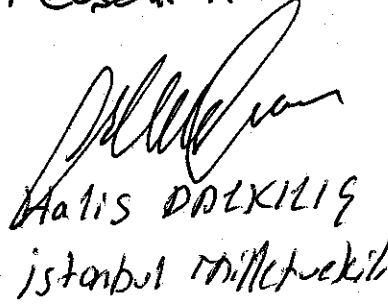 Halis DALKILIÇ
istanbul milletvekili